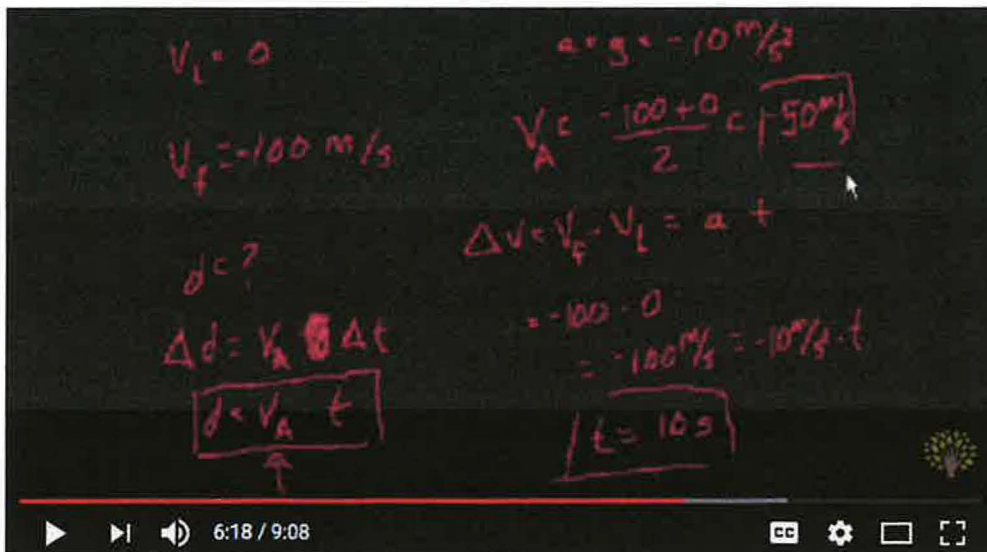 Vi = 0
Vf = -100 m/s
d = ?
Δd = VA Δt
d = VA t
a = g = -10 m/s²
VA = -100 + 0 / 2 = -50 m/s
ΔV = Vf - Vi = a t
= -100 - 0
= -100 m/s = -10 m/s² · t
t = 10 s
6:18 / 9:08
CC